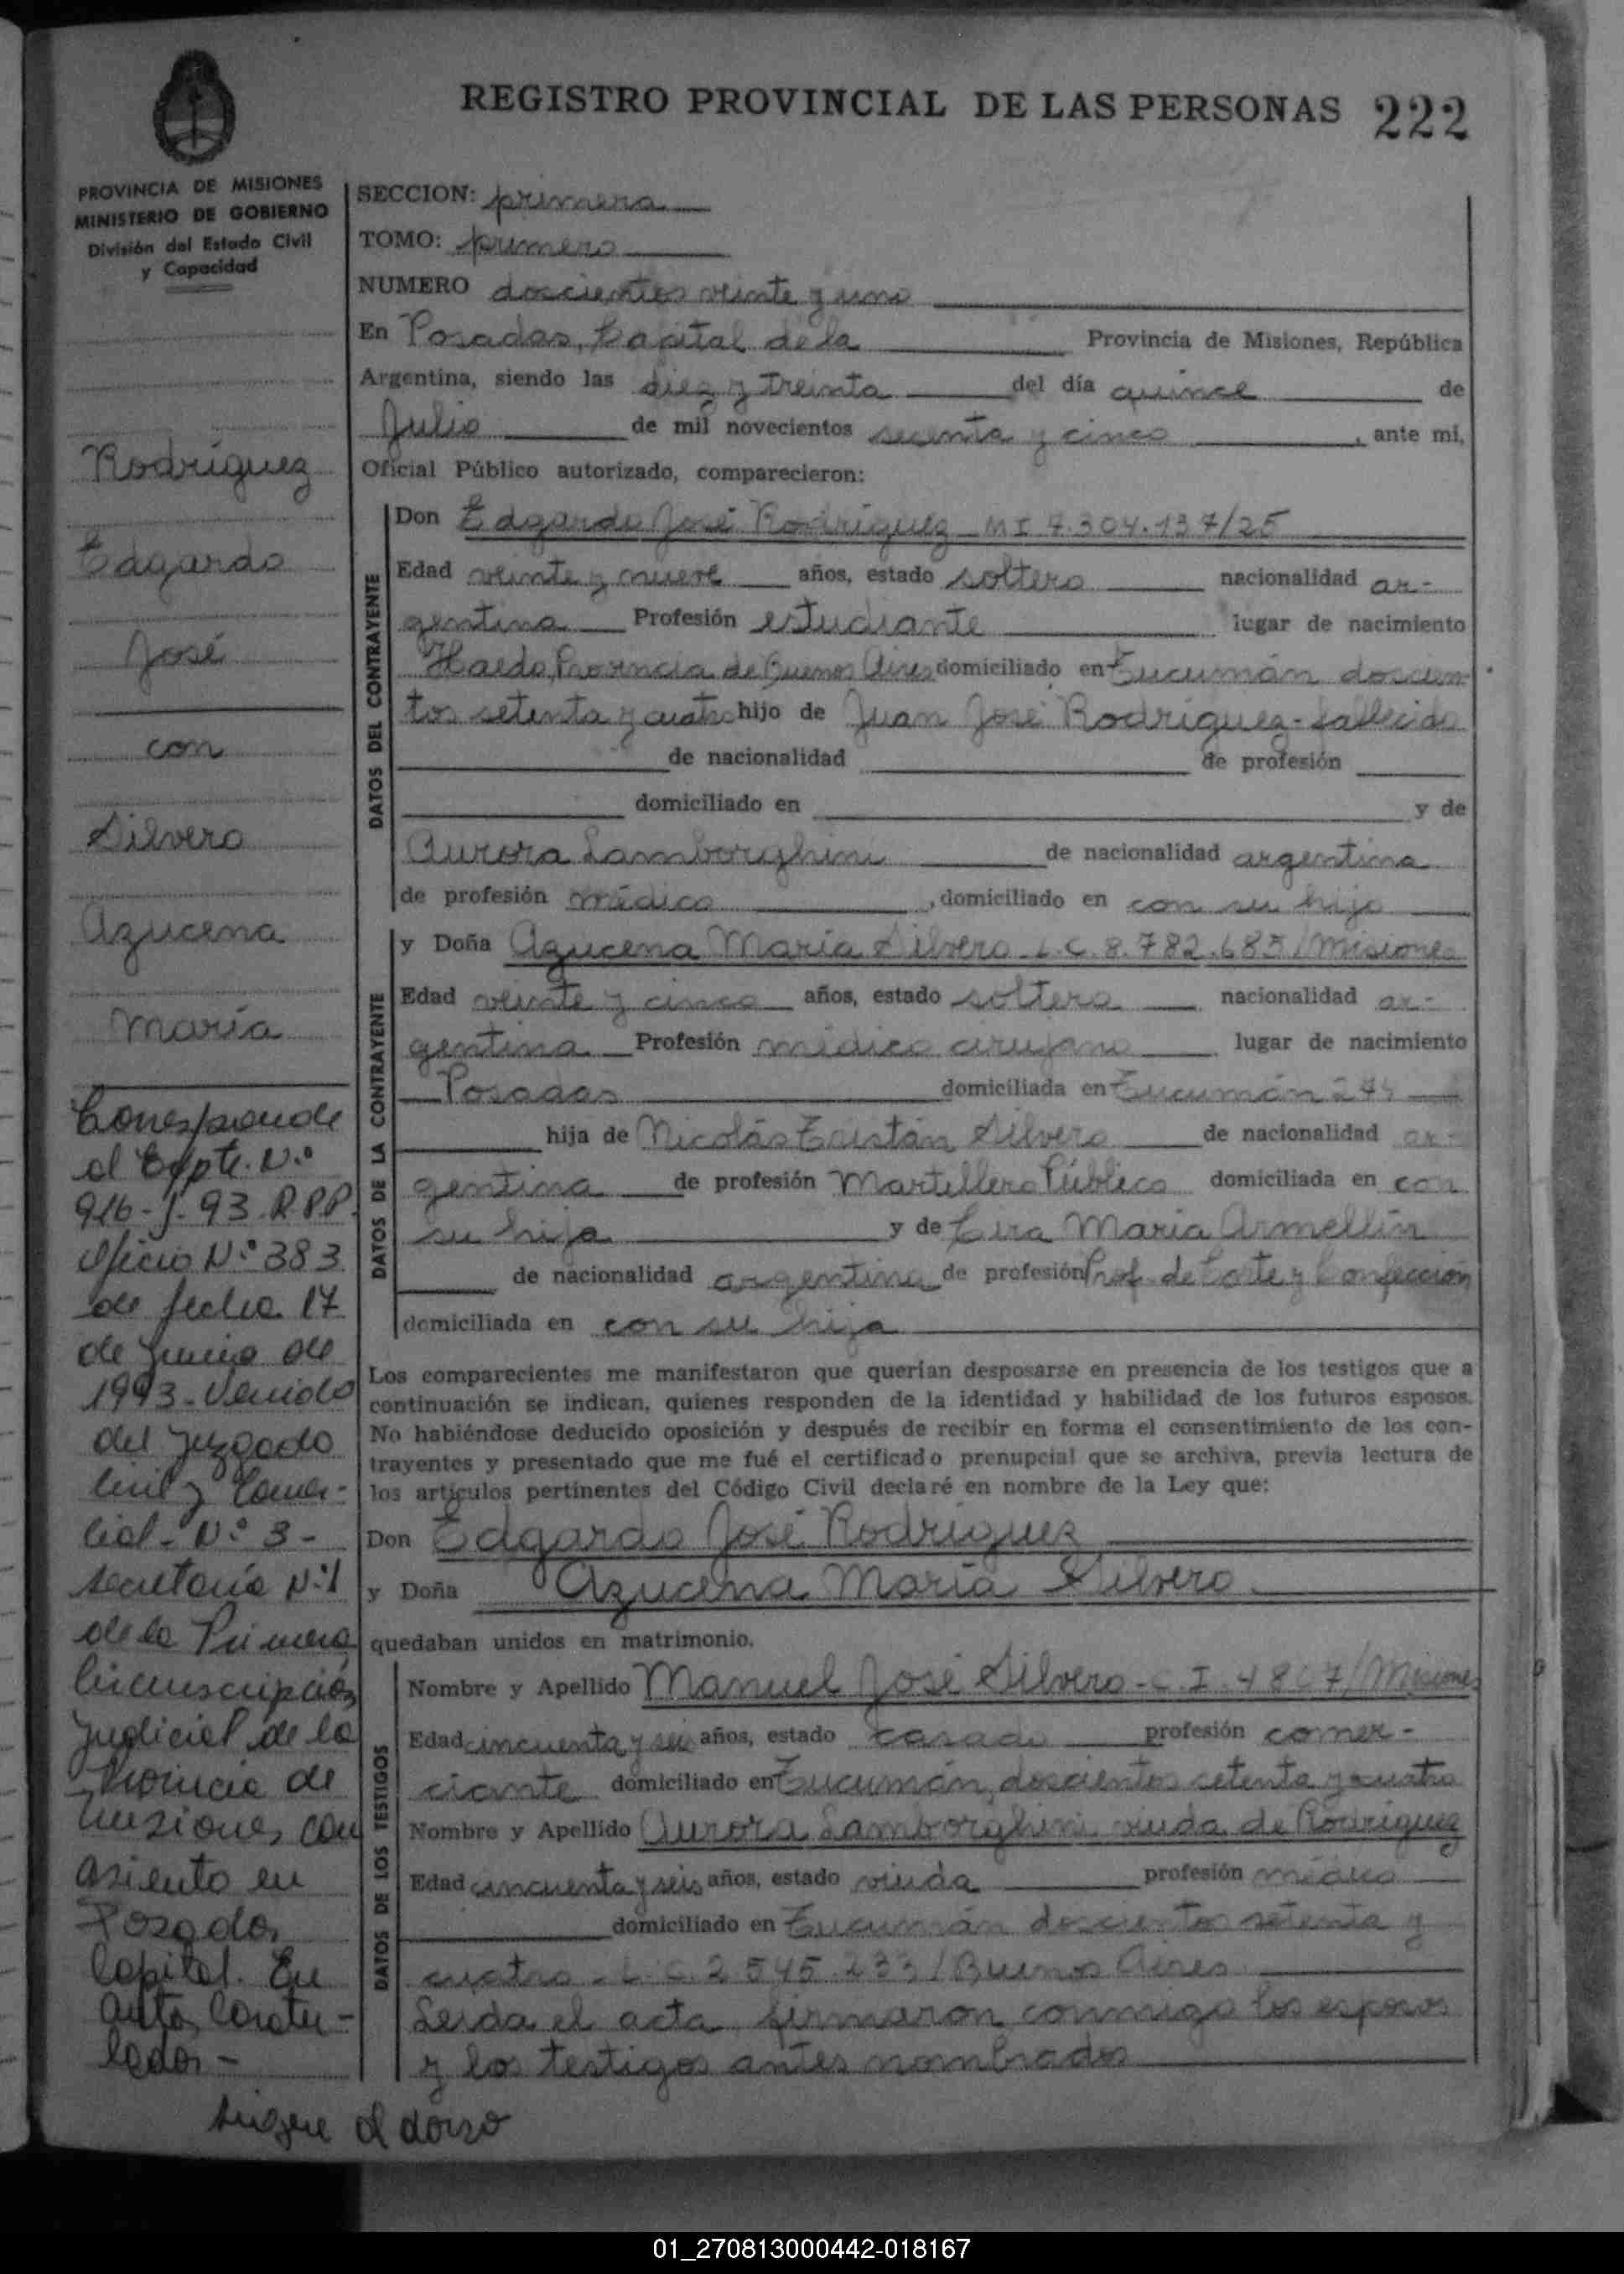 REGISTRO PROVINCIAL DE LAS PERSONAS 222
PROVINCIA DE MISIONES
MINISTERIO DE GOBIERNO
División del Estado Civil
y Capacidad
SECCION: primera
TOMO: primero
NUMERO doscientos veinte y uno
En Posadas, Capital de la Provincia de Misiones, República
Argentina, siendo las diez y treinta del día quince de
Julio de mil novecientos secenta y cinco, ante mi,
Oficial Público autorizado, comparecieron:
DATOS DEL CONTRAYENTE
Don Edgardo José Rodríguez MI 7.304.137/25
Edad veinte y nueve años, estado soltero nacionalidad ar-
gentina Profesión estudiante lugar de nacimiento
Haedo, Provincia de Buenos Aires domiciliado en Tucumán doscien-
tos setenta y cuatro hijo de Juan José Rodríguez-fallecido
de nacionalidad de profesión
domiciliado en y de
Aurora Lamborghini de nacionalidad argentina
de profesión médica, domiciliado en con su hijo
DATOS DE LA CONTRAYENTE
y Doña Azucena María Silvero L.C. 8.782.685/Misiones
Edad veinte y cinco años, estado soltera nacionalidad ar-
gentina Profesión médico cirujano lugar de nacimiento
Posadas domiciliada en Tucumán 274
hija de Nicolás Tristán Silvero de nacionalidad ar-
gentina de profesión Martillero Público domiciliada en con
su hija y de Cira María Armellin
de nacionalidad argentina de profesión Prof. de Corte y Confección
domiciliada en con su hija
Los comparecientes me manifestaron que querían desposarse en presencia de los testigos que a
continuación se indican, quienes responden de la identidad y habilidad de los futuros esposos.
No habiéndose deducido oposición y después de recibir en forma el consentimiento de los con-
trayentes y presentado que me fué el certificado prenupcial que se archiva, previa lectura de
los artículos pertinentes del Código Civil declaré en nombre de la Ley que:
Don Edgardo José Rodríguez
y Doña Azucena María Silvero
quedaban unidos en matrimonio.
DATOS DE LOS TESTIGOS
Nombre y Apellido Manuel José Silvero-C.I. /Misiones
Edad cincuenta y seis años, estado casado profesión comer-
ciante domiciliado en Tucumán, doscientos setenta y cuatro
Nombre y Apellido Aurora Lamborghini viuda de Rodríguez
Edad cincuenta y seis años, estado viuda profesión médica
domiciliado en Tucumán doscientos setenta y
cuatro - L.C. 2.545.233/Buenos Aires
Leida el acta firmaron conmigo los esposos
y los testigos antes nombrados
Rodríguez
Edgardo
José
con
Silvero
Azucena
María
Corresponde
al Expte. N.º
916-J-93 R.P.P.
Oficio Nº 383
de fecha 17
de Junio de
1993-Venido
del Juzgado
Civil y Comer-
cial-Nº 3-
Secretaría Nº 1
de la Primera
Circunscripción
Judicial de la
Provincia de
Misiones con
asiento en
Posadas
Capital. En
autos Caratu-
lados-
sigue al dorso
01_270813000442-018167